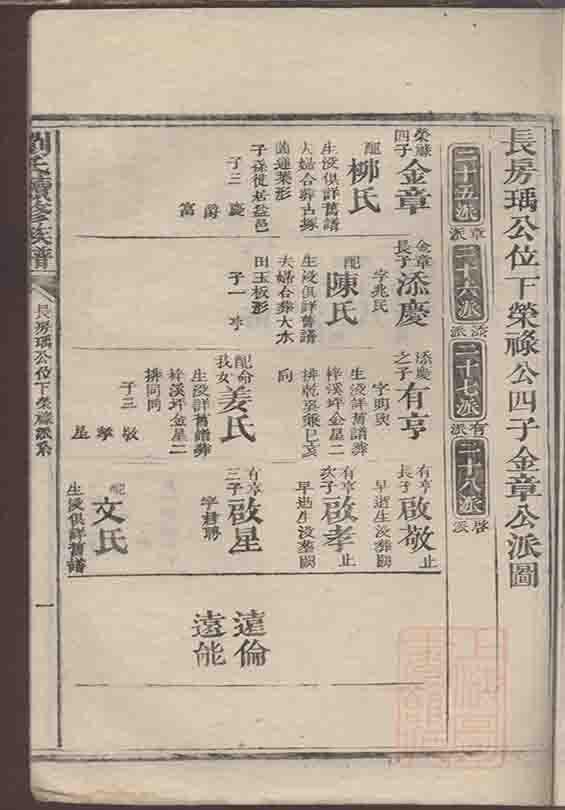 長房瑀公位下榮祿公四子金章公派圖
二十五派
章派
二十六派
添派
二十七派
有派
二十八派
啓派
榮祿
四子
金章
配
柳氏
生沒俱詳舊譜
夫婦合葬古塚
蓮葉形
子孫徙居益邑
子三
慶
爵
富
金章
長子
添慶
字兆民
配
陳氏
生沒俱詳舊譜
夫婦合葬大水
田玉板形
子一
亨
添慶
之子
有亨
生沒詳舊譜葬
梓溪坪金星二
排乾巽兼巳亥
向
配俞
我女
姜氏
生沒詳舊譜葬
梓溪坪金星二
排同向
子三
敬
孝
星
有亨
長子
啟敬
止
早逝生沒葬闕
有亨
次子
啟孝
止
早逝生沒葬闕
有亨
三子
啟星
字君聘
配
文氏
生沒俱詳舊譜
遠倫
遠能
劉氏續修族譜
長房瑀公位下榮祿派系
一